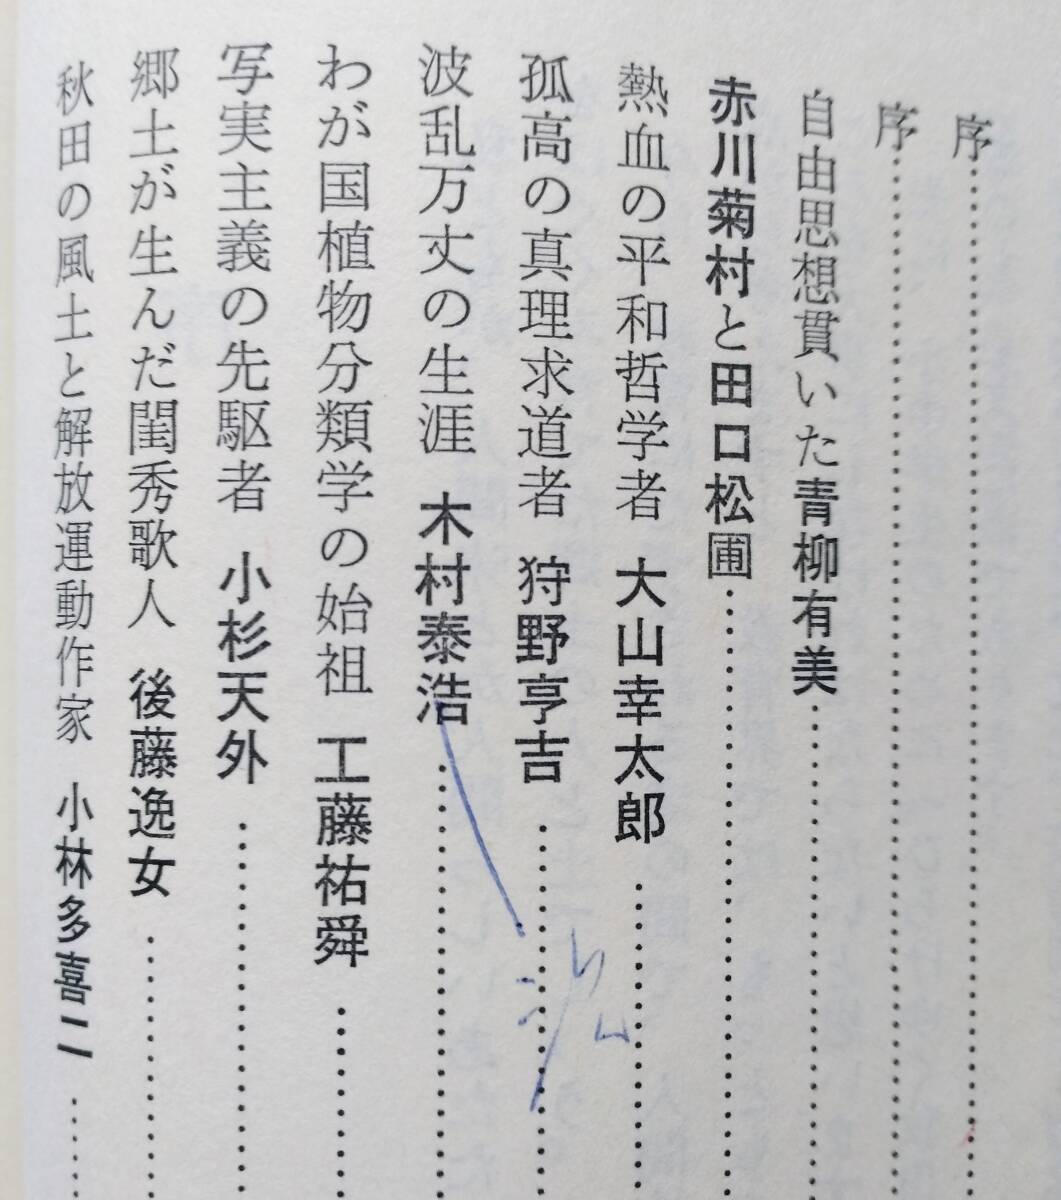 序
序
自由思想貫いた青柳有美
赤川菊村と田口松圃
熱血の平和哲学者 大山幸太郎
孤高の真理求道者 狩野亨吉
波乱万丈の生涯 木村泰浩
わが国植物分類学の始祖 工藤祐舜
写実主義の先駆者 小杉天外
郷土が生んだ閨秀歌人 後藤逸女
秋田の風土と解放運動作家 小林多喜二